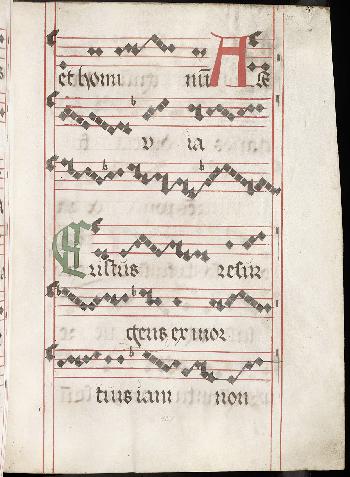 et homi nū A lle
v ia
Cristus resur
gens ex mor
tuis iam non